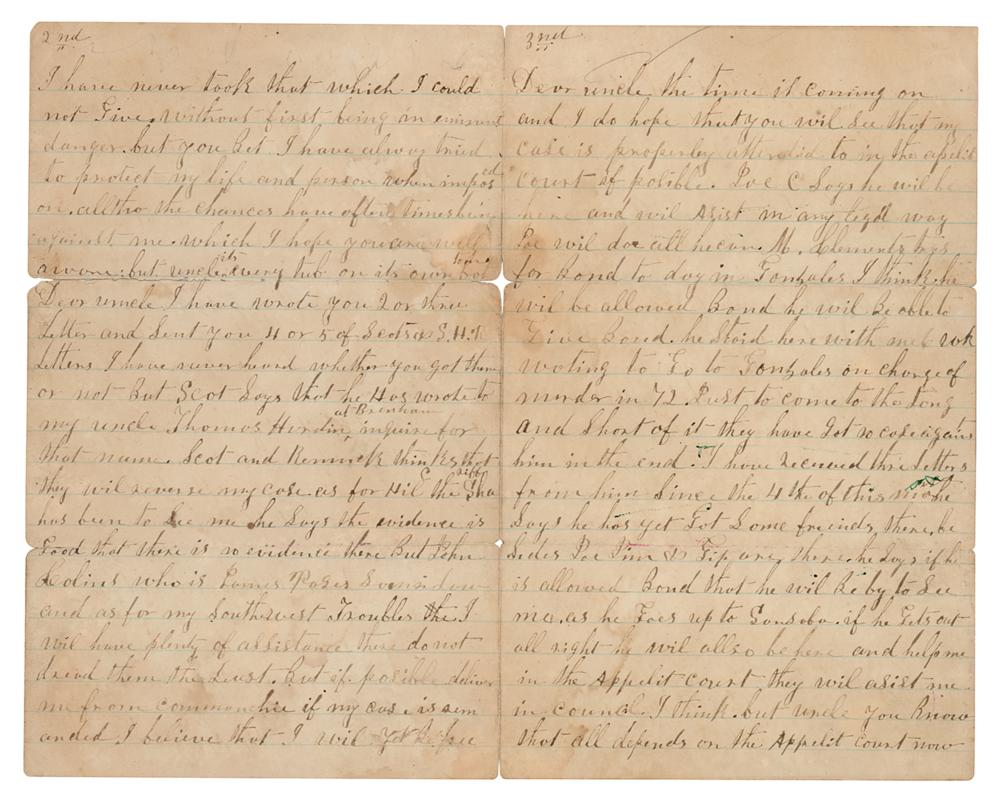 2nd
I have never took that which I could
not Give, without first being in eminent
danger. but you Bet I have alway tried
to protect my life and person when imposed
on. altho the chances have often times being
against me. which I hope you are well
awar. but uncle its every tub on its own bot
Dear uncle I have wrote you 2 or thre
Letter and Sent you 4 or 5 of Scots
Letters I have never heard whether you got them
or not But Scot Says that he Has wrote to
my uncle Thomas Hardin, at Brenham inquire for
that name. Scot and Rennick thinks that
they wil reverse my case. as for Hil the Sha
has been to See me he Says the evidence is
Good that there is no evidence there But John
who is
and as for my Southwest Troubles the I
wil have plenty of assistance there do not
dread them the Least. But if posible deliver
me from commanchie if my case is rem
anded I believe that I wil yet Be free
3nd
Dear uncle the time it coming on
and I do hope that you wil See that my
case is properley attendid to in the apelit
court if posible. C Says he wil be
here and wil Asist in any legal way
wil doe all he can. M. Clements trys
for Bond to day in Gonzales I think he
wil be allowed Bond he wil Be able to
Give Bond. he Staid here with me
wating to Go to Gonzales on charge of
murder in 72. Just to come to the Long
and Short of it they have Got no case agains
him in the end. I have receved thre Letters
from him Since the 4 the of this he
Says he has yet Got Some friends, there, be
Sides Jim & Gip are there. he Says if he
is allowed Bond that he wil Be by to See
me. as he Goes up to Sansaba. if he Gets out
all right he wil allso be here and help me
in the Appelit court, they wil asist me
in council I think. but uncle you Know
that all depends on the Appelit court now